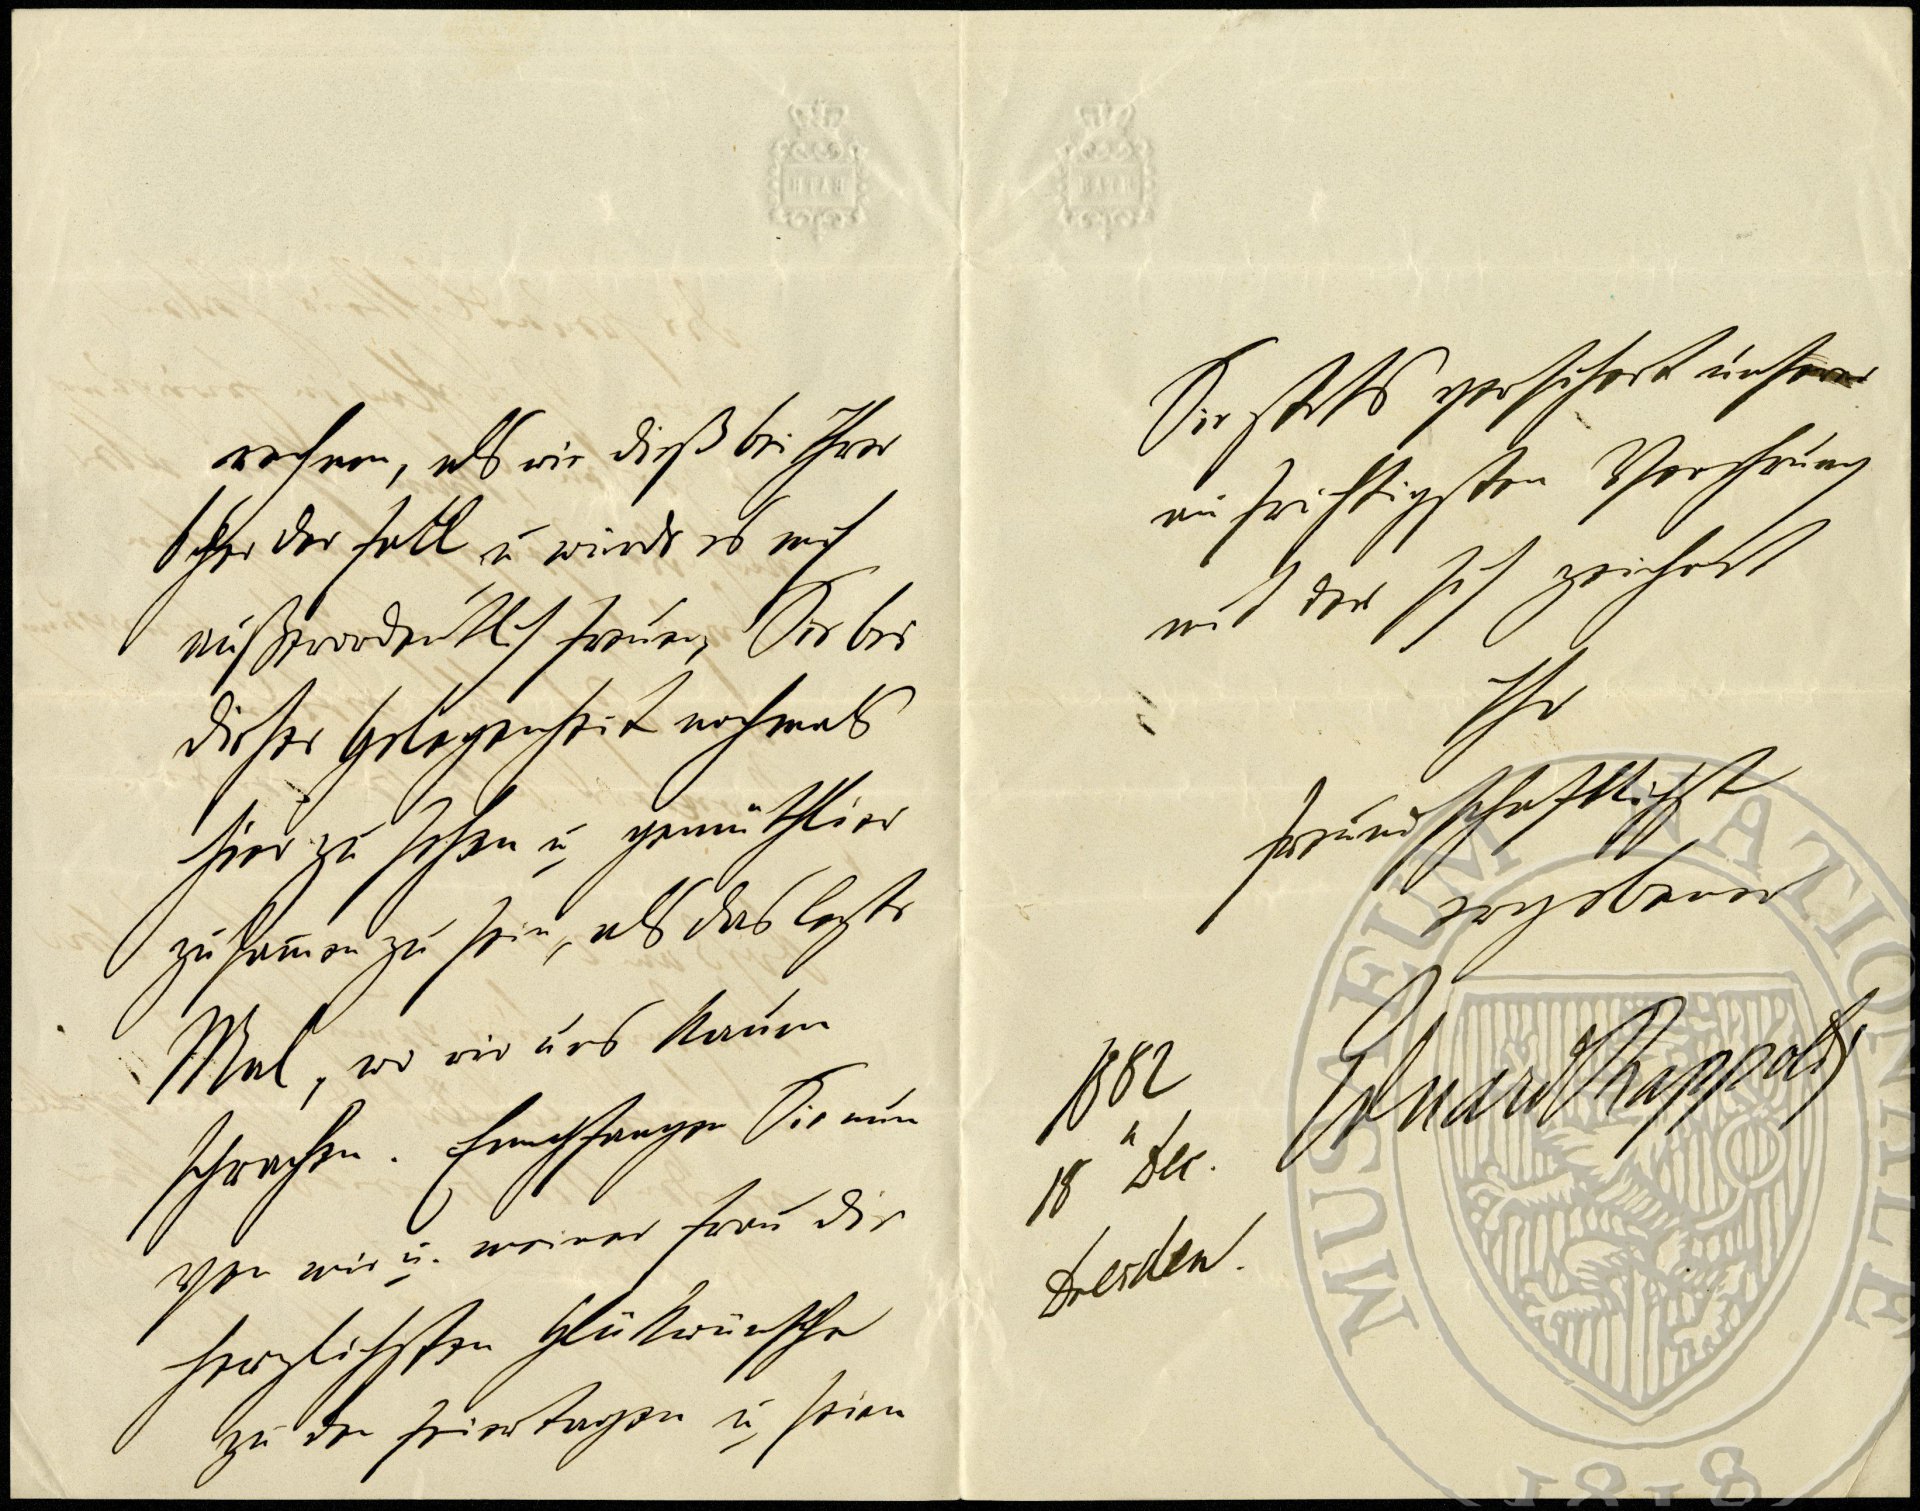 rechnen, als wie dieß bei Ihrer
der Fall u würde es mich
außerordentlich freuen, Sie bei
dieser Gelegenheit nochmals
hier zu sehen u gemüthlicher
zusamen zu sein, als das lezte
Mal, wo wir uns kaum
sprachen. Empfangen Sie nun
von mir u. meiner Frau die
herzlichsten Glükwünsche
zu den Feiertagen u seien
Sie stets versichert unserer
aufrichtigsten Verehrung
mit der sich zeichnet
Ihr
freundschaftlichst
ergebener
Eduard Rappoldi
1882
18 n Dec.
Dresden.
MUSAEUM NATIONALE
1818